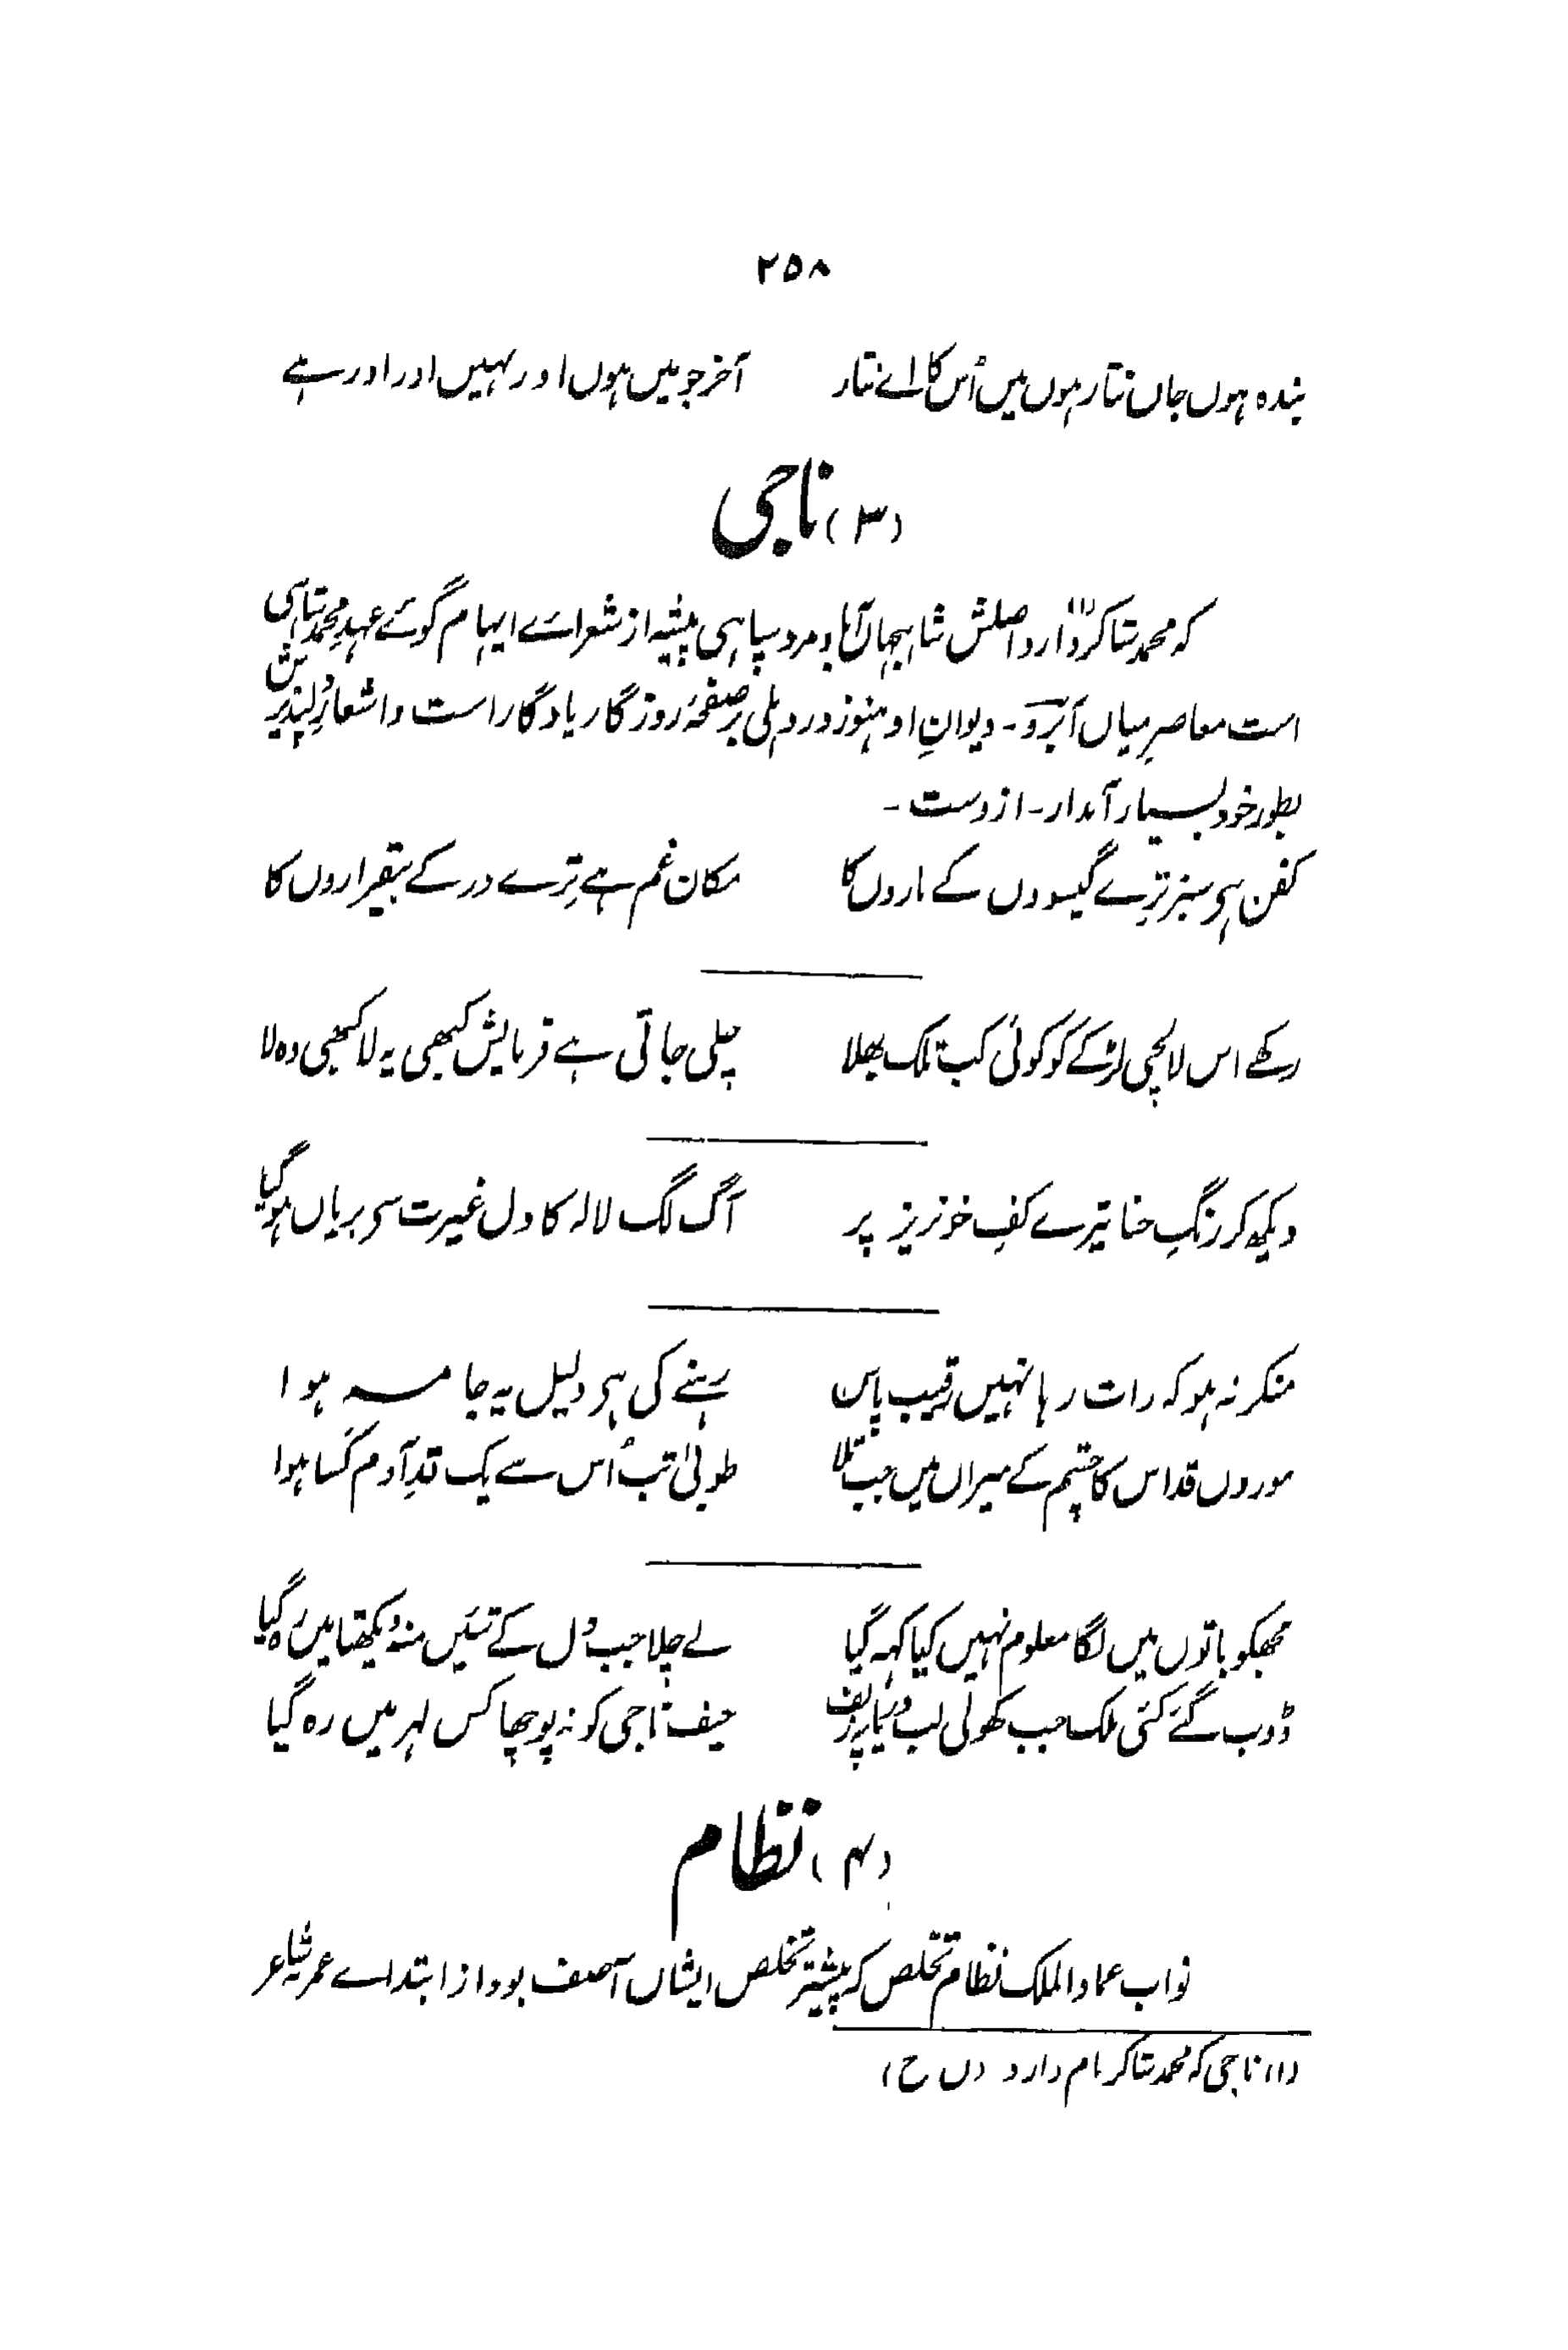 ۲۵۸
بندہ ہوں جاں نثار ہوں میں اُس کا اے نثار آخر جو میں ہوں اور نہیں اور اور ہے
(۳) ناجی
کہ محمد شاکر(۱) دارد اصلش شاہجہاں آباد مرد سپاہی پیشہ از شعراے ایہام گوئے عہدِ محمد شاہی
است معاصرِ میاں آبرو ۔ دیوانِ او ہنوز در دہلی بر صفحۂ روزگار یادگار است و اشعارِ دلپذیرش
بطور خود بسیار آبدار ۔ ازوست ۔
کفن ہی سبز ترے گیسووں کے ماروں کا مکان غم ہے ترے در کے بیقراروں کا
رکھے اس لالچی لڑکے کو کوئی کب تلک بھلا چلی جاتی ہے فرمایش کبھی یہ لا کبھی وہ لا
دیکھ کر رنگِ حنا تیرے کفِ خونریز پر آگ لگ لالہ کا دل غیرت سی بریاں ہو گیا
منکر نہ ہو کہ رات رہا نہیں رقیب پاس رہنے کی ہی دلیل یہ جامہ ہوا
موزوں قد اس کا چشم کے میزاں میں جب تلا طوبیٰ تب اُس سے یک قدِ آدم کسا ہوا
مجھکو باتوں میں لگا معلوم نہیں کیا کہہ گیا لے چلا جب دل کے تئیں منہ دیکھتا میں رہ گیا
ڈوب گئے کئی ملک جب کھولی لب دریا پر زلف حیف ناجی کو نہ پوچھا کس لہر میں رہ گیا
(۴) نظام
نواب عماد الملک نظام تخلص کہ پیشتر تخلص ایشاں آصف بود از ابتداے عمر شاعر
(۱) ناجی کہ محمد شاکر نام دارد (ن ح)